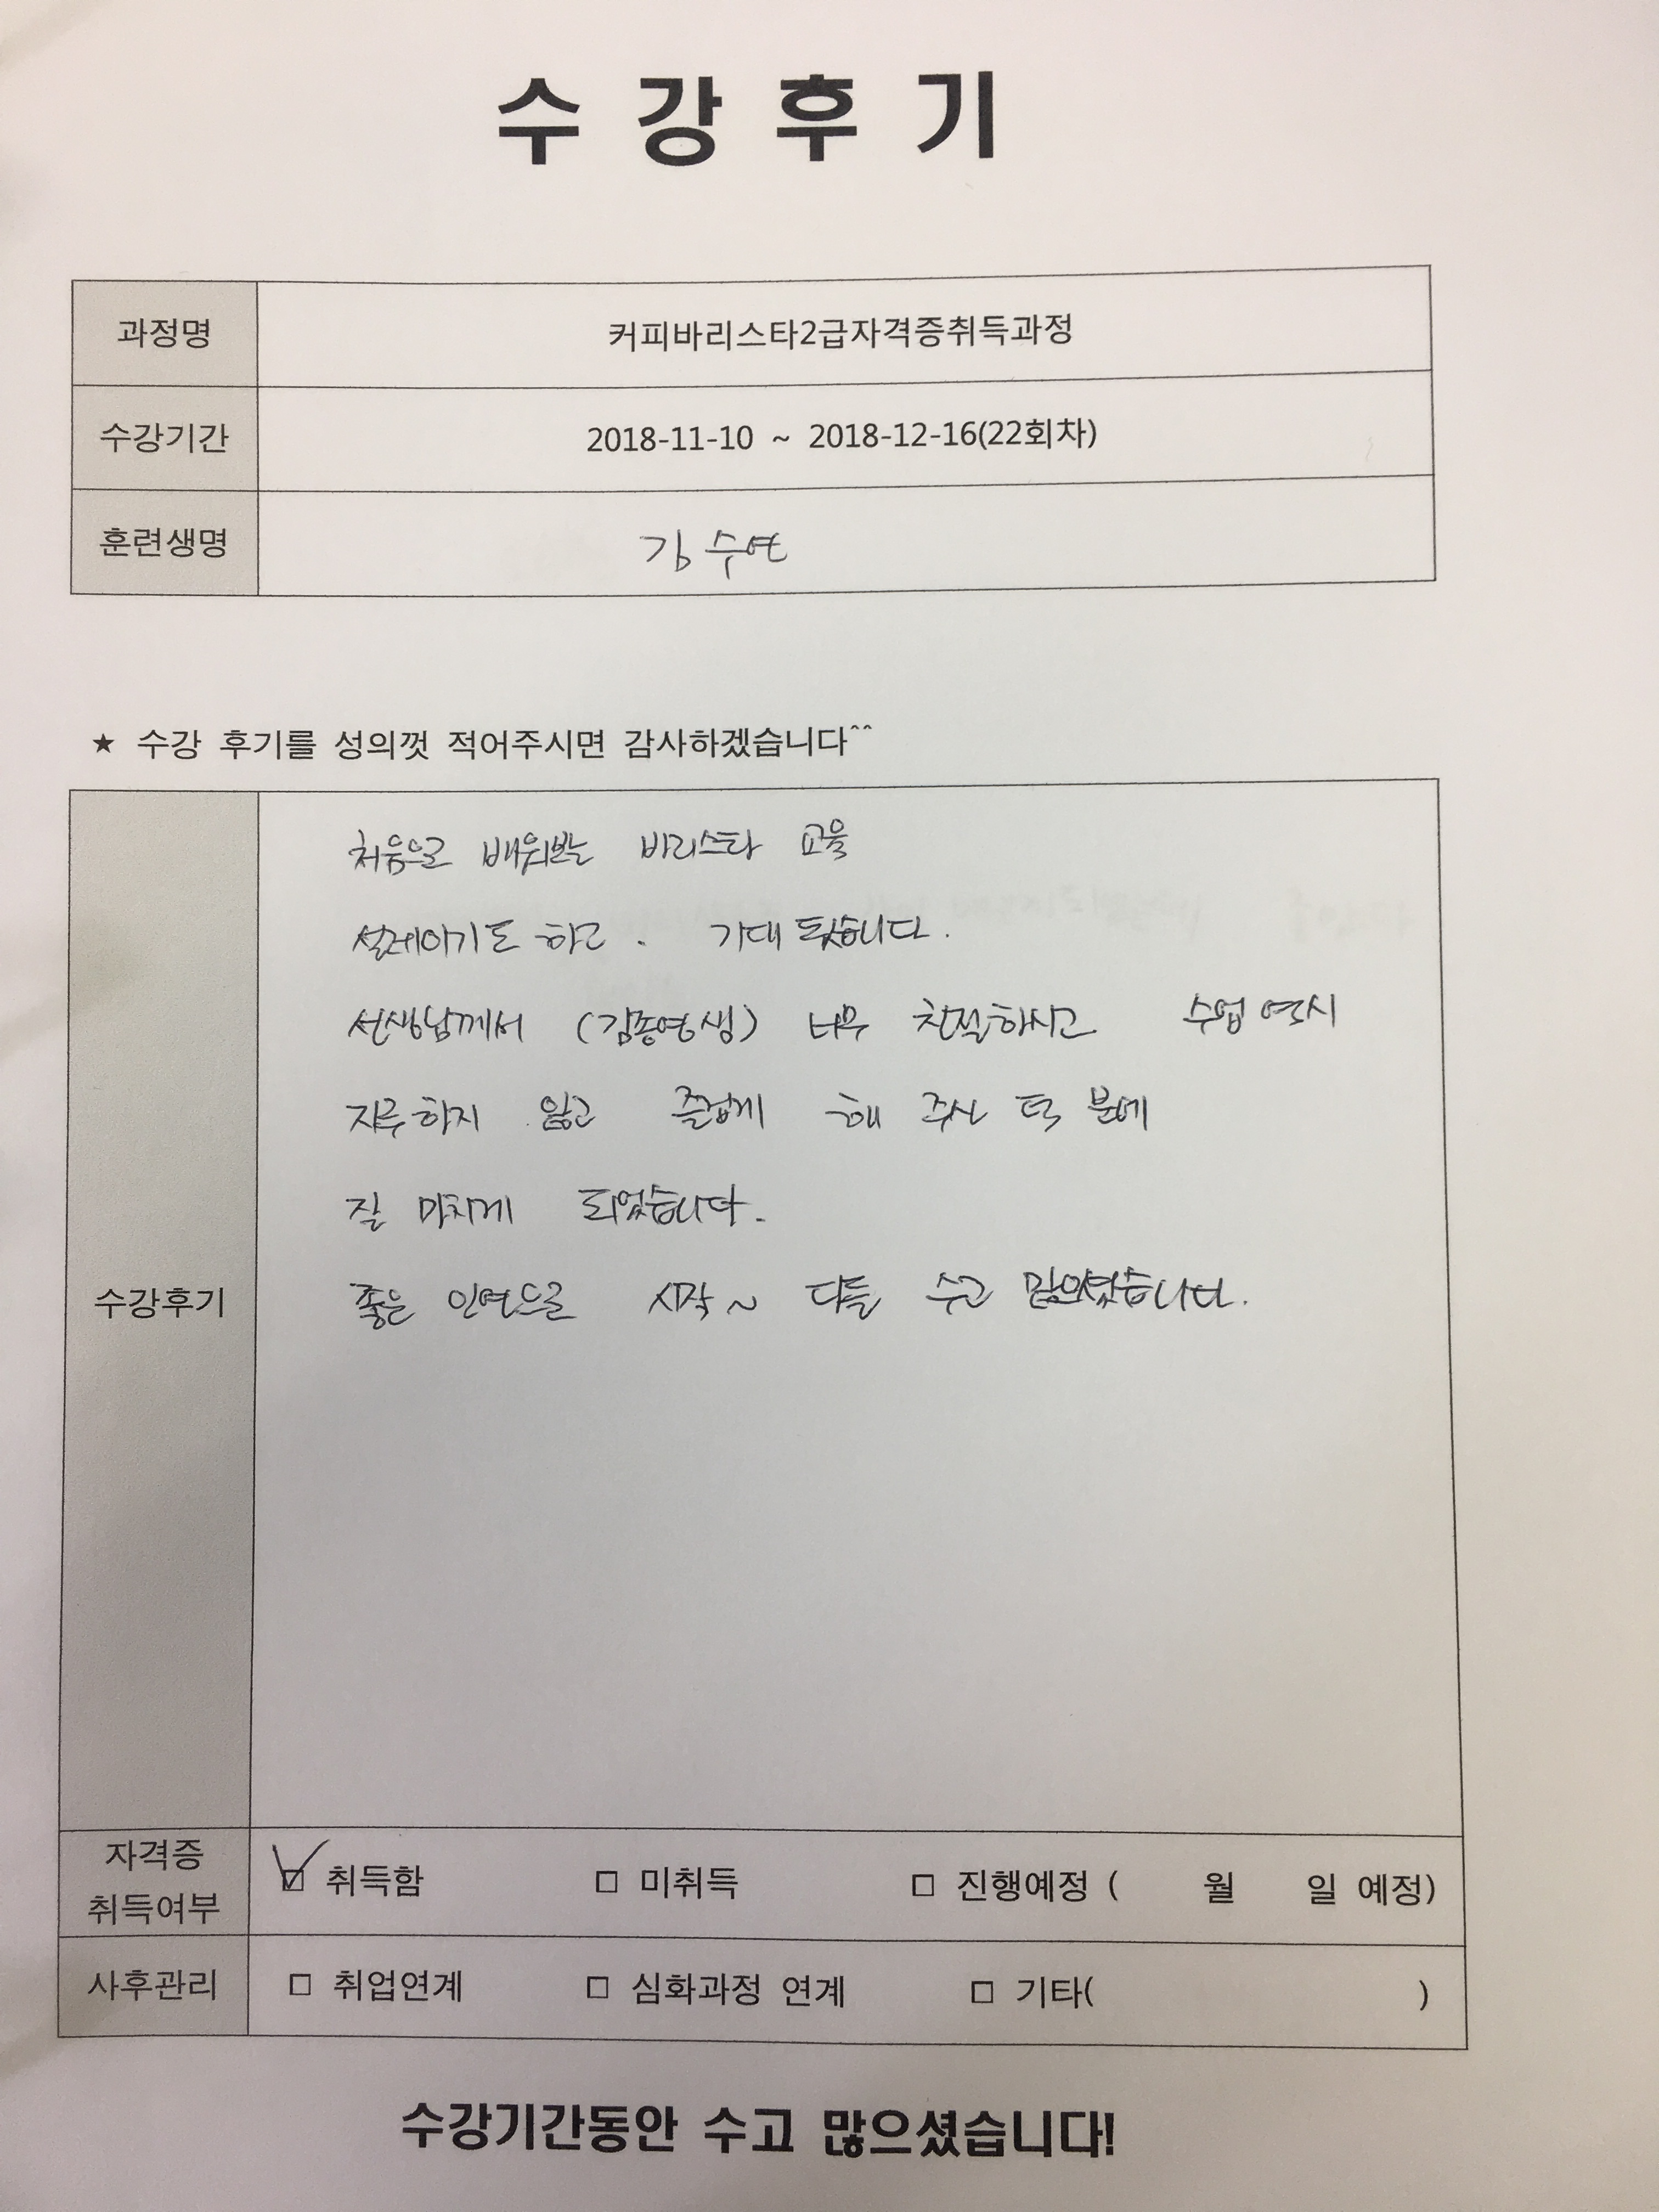 수강후기
과정명 커피바리스타2급자격증취득과정
수강기간 2018-11-10 ~ 2018-12-16(22회차)
훈련생명 김수연
★ 수강 후기를 성의껏 적어주시면 감사하겠습니다^^
처음으로 배워보는 바리스타 교육
설레이기도 하고. 기대 됬습니다.
선생님께서 (김종영생) 너무 친절하시고 수업 역시
지루하지 않고 즐겁게 해 주신 덕 분에
잘 마치게 되었습니다.
좋은 인연으로 시작~ 다들 수고 많으셨습니다.
수강후기
자격증
취득여부
☑ 취득함 □ 미취득 □ 진행예정 ( 월 일 예정)
사후관리 □ 취업연계 □ 심화과정 연계 □ 기타( )
수강기간동안 수고 많으셨습니다!